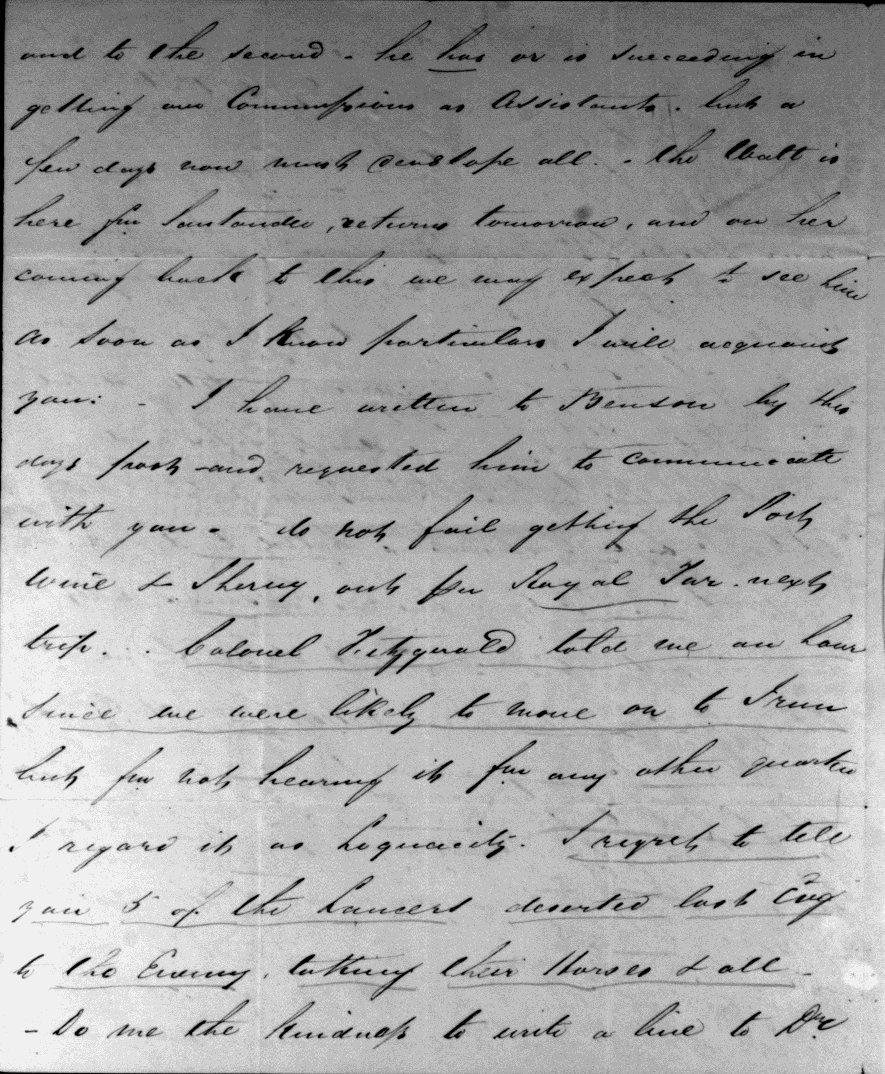 and to the second - he has or is succeeding in
getting our Commissions as Assistants. but a
few days now must develope all. - the Watt is
here fm Santander, returns tomorrow, and on her
coming back to this we may expect to see him
as soon as I know particulars I will acquaint
you: - I have written to Benson by this
days post - and requested him to communicate
with you - do not fail getting the Port
wine & Sherry, out per Royal Tar next
trip. .. Colonel Fitzgerald told me an hour
since we were likely to move on to Irun
but fm not hearing it fm any other quarter
I regard it as Loquacity. I regret to tell
you 5 of the Lancers deserted last Evg
to the Enemy, taking their Horses & all -
- Do me the kindness to write a line to